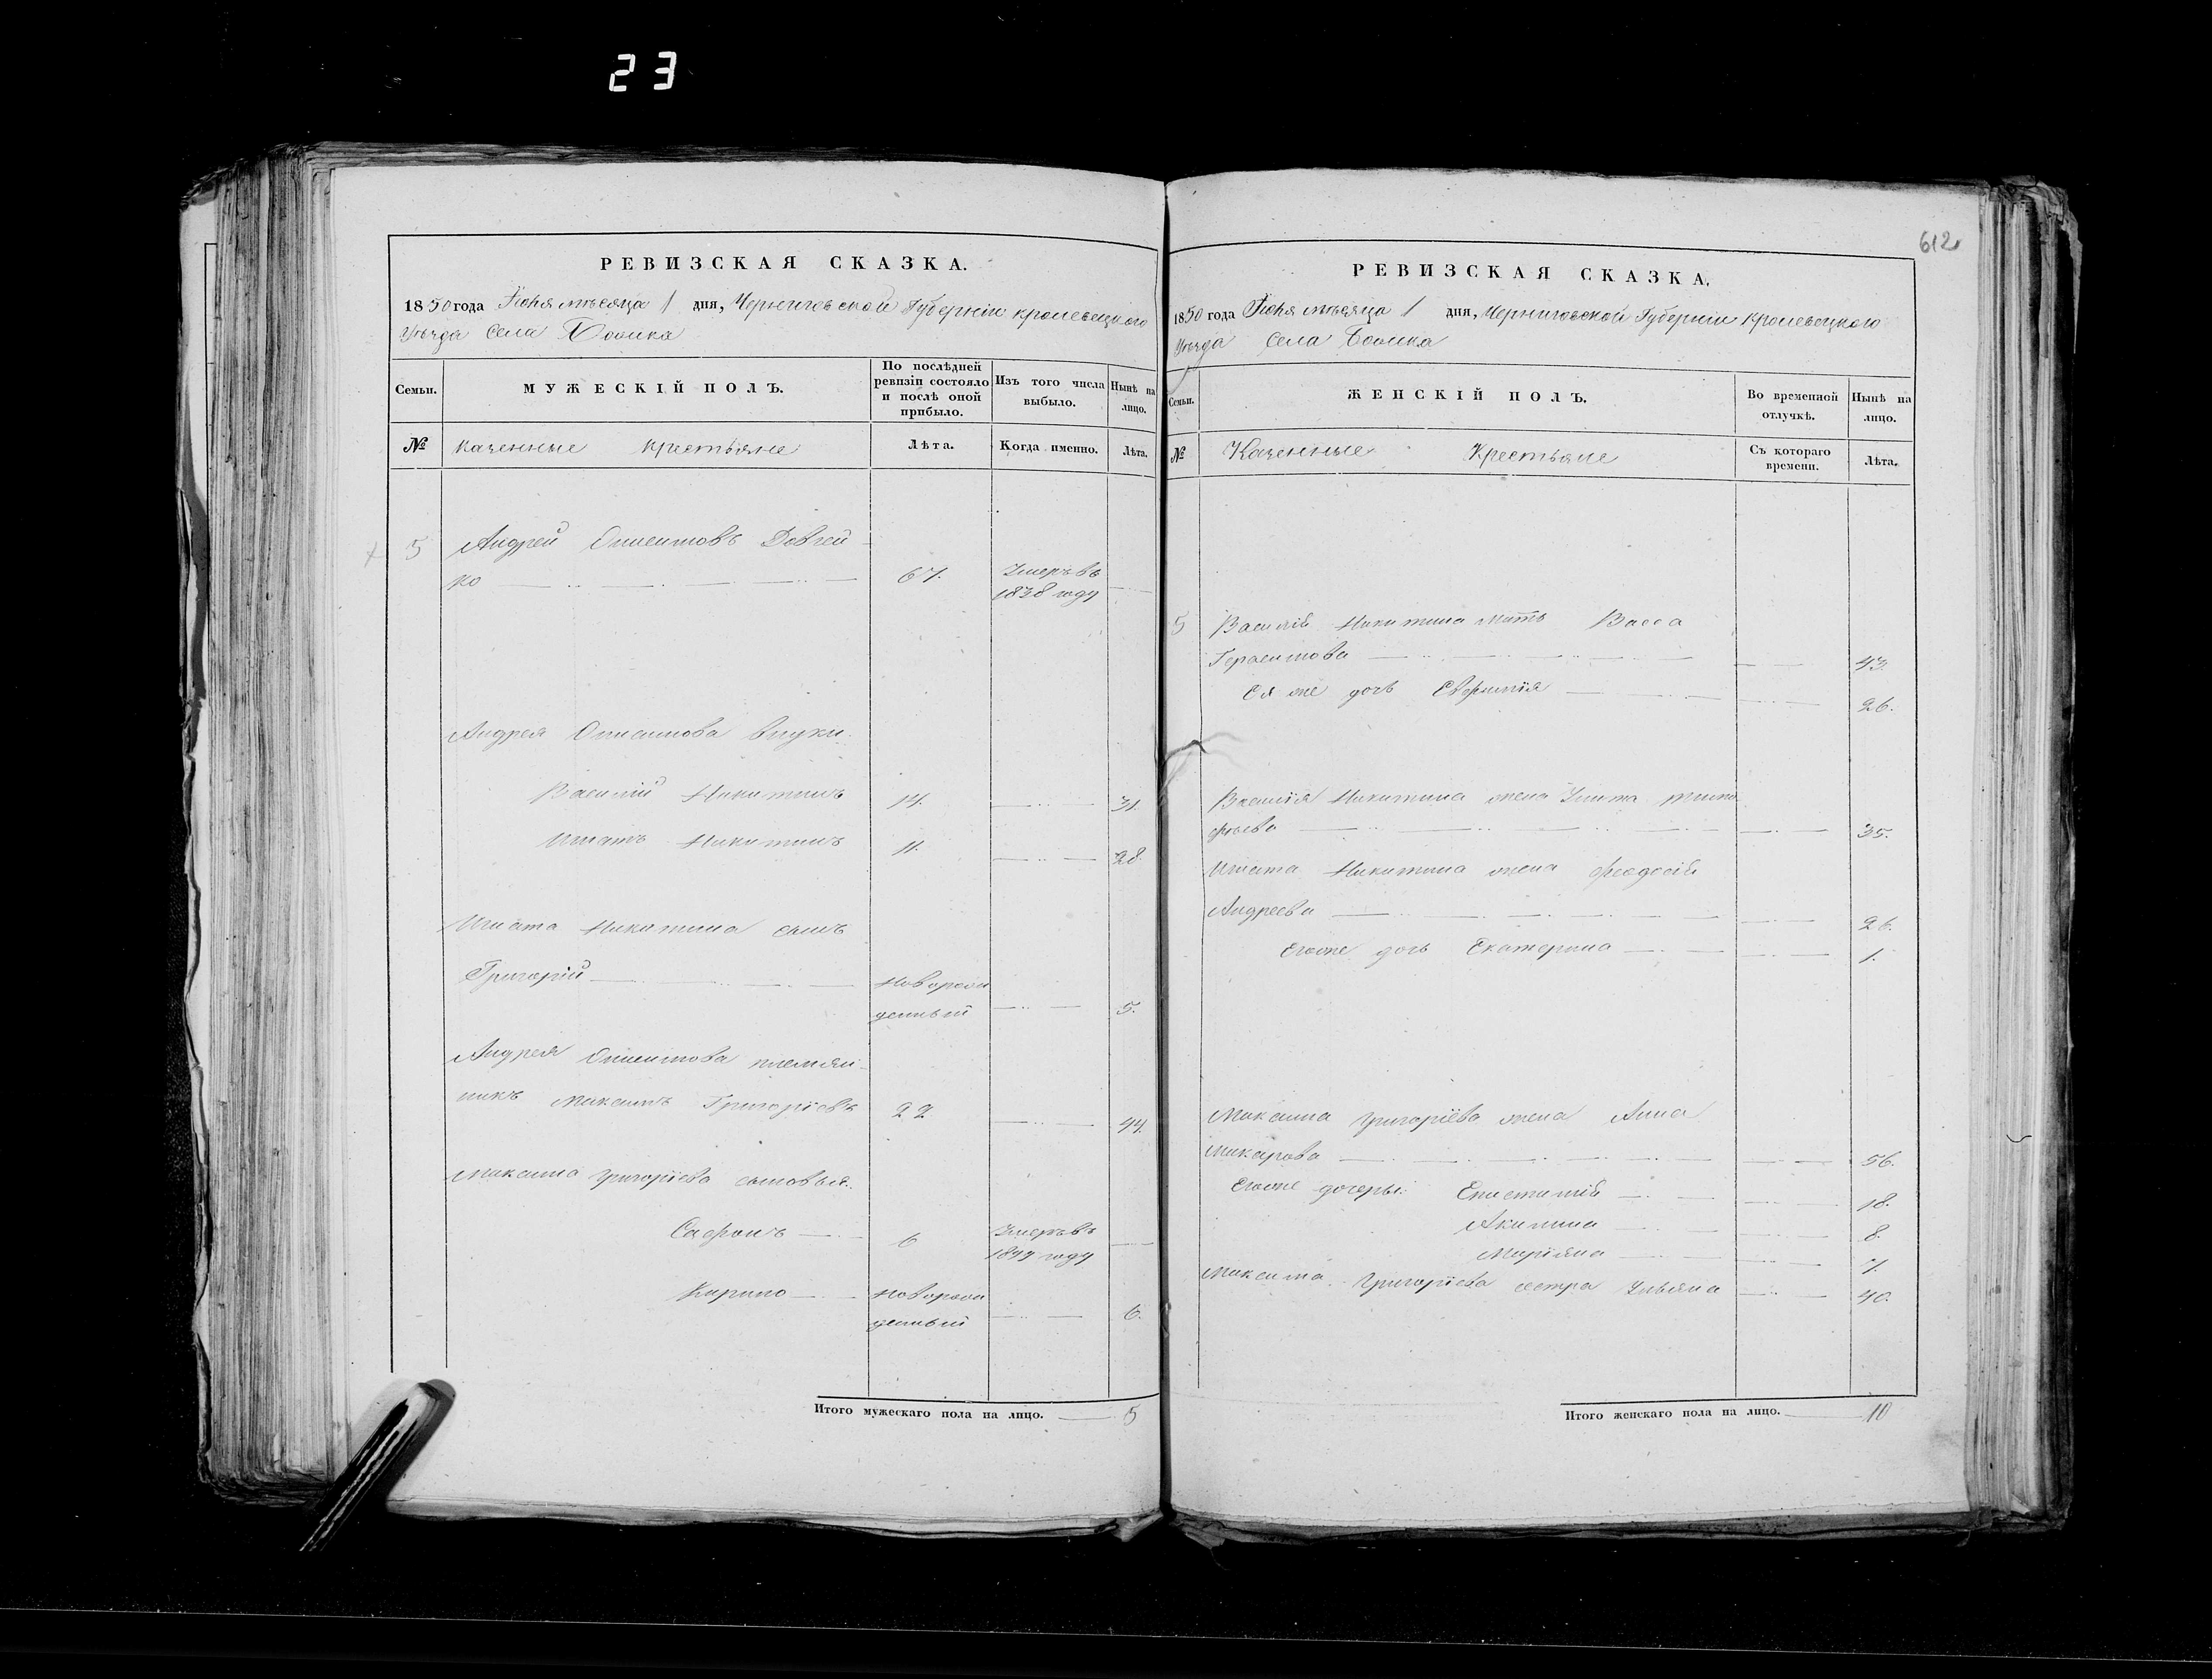 23
612
РЕВИЗСКАЯ СКАЗКА.
1850 года Іюня мѣсяца 1 дня, Черниговской Губерніи кролевецкого
Уѣзда Села
Семьи.
МУЖЕСКІЙ ПОЛЪ.
По послѣдней
ревизіи состояло
и послѣ оной
прибыло.
Изъ того числа
выбыло.
Нынѣ на
лицо.
№
Казенные крестьяне
Лѣта.
Когда именно.
Лѣта.
5 Андрей Онисимовъ Довгей-
ко 67. Умеръ въ
1838 году
Андрея Онисимова внуки
Василій Никитинъ 14. 31.
Игнатъ Никитинъ 11. 28.
Игната Никитина сынъ
Григорій новорож
денный 5.
Андрея Онисимова племян-
никъ Максимъ Григоріевъ 22 44.
Максима Григоріева сыновья.
Сафонъ 6 Умеръ въ
1844 году
Кирило новорож
денный 6.
Итого мужескаго пола на лицо. 5
РЕВИЗСКАЯ СКАЗКА.
1850 года Іюня мѣсяца 1 дня, Черниговской Губерніи Кролевецкого
Уѣзда Села
Семьи.
ЖЕНСКІЙ ПОЛЪ.
Во временной
отлучкѣ.
Нынѣ на
лицо.
№
Казенные Крестьяне
Съ котораго
времени.
Лѣта.
5 Василія Никитина мать Васса
Герасимова 43.
Ея же дочь Евфимія 26.
Василія Никитина жена Улита
фѣева 35.
Игната Никитина жена Феодосія
Андреева 26.
Егоже дочь Екатерина 1.
Максима Григоріева жена Анна
Макарова 56.
Егоже дочери: Епистимія 18.
Акилина 8.
Маріяна 7.
Максима Григоріева сестра Ульяна 40.
Итого женскаго пола на лицо. 10